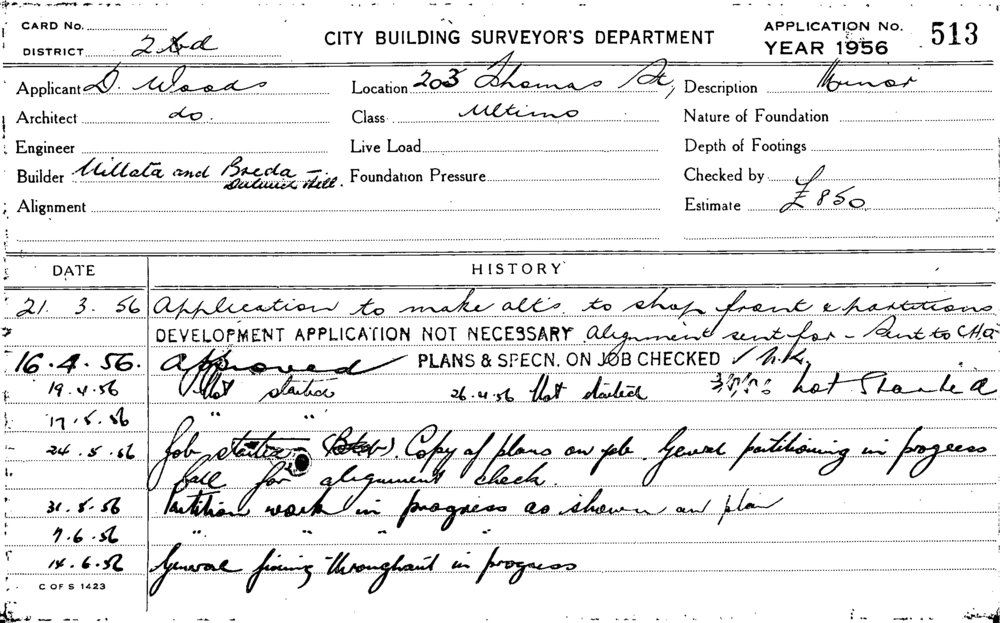 CARD No.
DISTRICT 2nd
CITY BUILDING SURVEYOR'S DEPARTMENT
APPLICATION No. 513
YEAR 1956
Applicant D. Woods Location 203 Thomas St, Description Minor
Architect do. Class Ultimo Nature of Foundation
Engineer Live Load Depth of Footings
Builder and Breda – Dulwich Hill. Foundation Pressure Checked by
Alignment Estimate £850
DATE HISTORY
21. 3. 56 Application to make alts. to shop front & partitions
DEVELOPMENT APPLICATION NOT NECESSARY Alignment sent for – Sent to
16.4.56. Approved PLANS & SPECN. ON JOB CHECKED
19.4.56 Not started 26.4.56 Not started Not Started
17.5.56 " "
24.5.56 Job started. Copy of plans on job. General partitioning in progress
Call for alignment check.
31.5.56 Partition work in progress as shown on plan
7.6.56 " " " "
14.6.56 General fixing throughout in progress
C OF S 1423